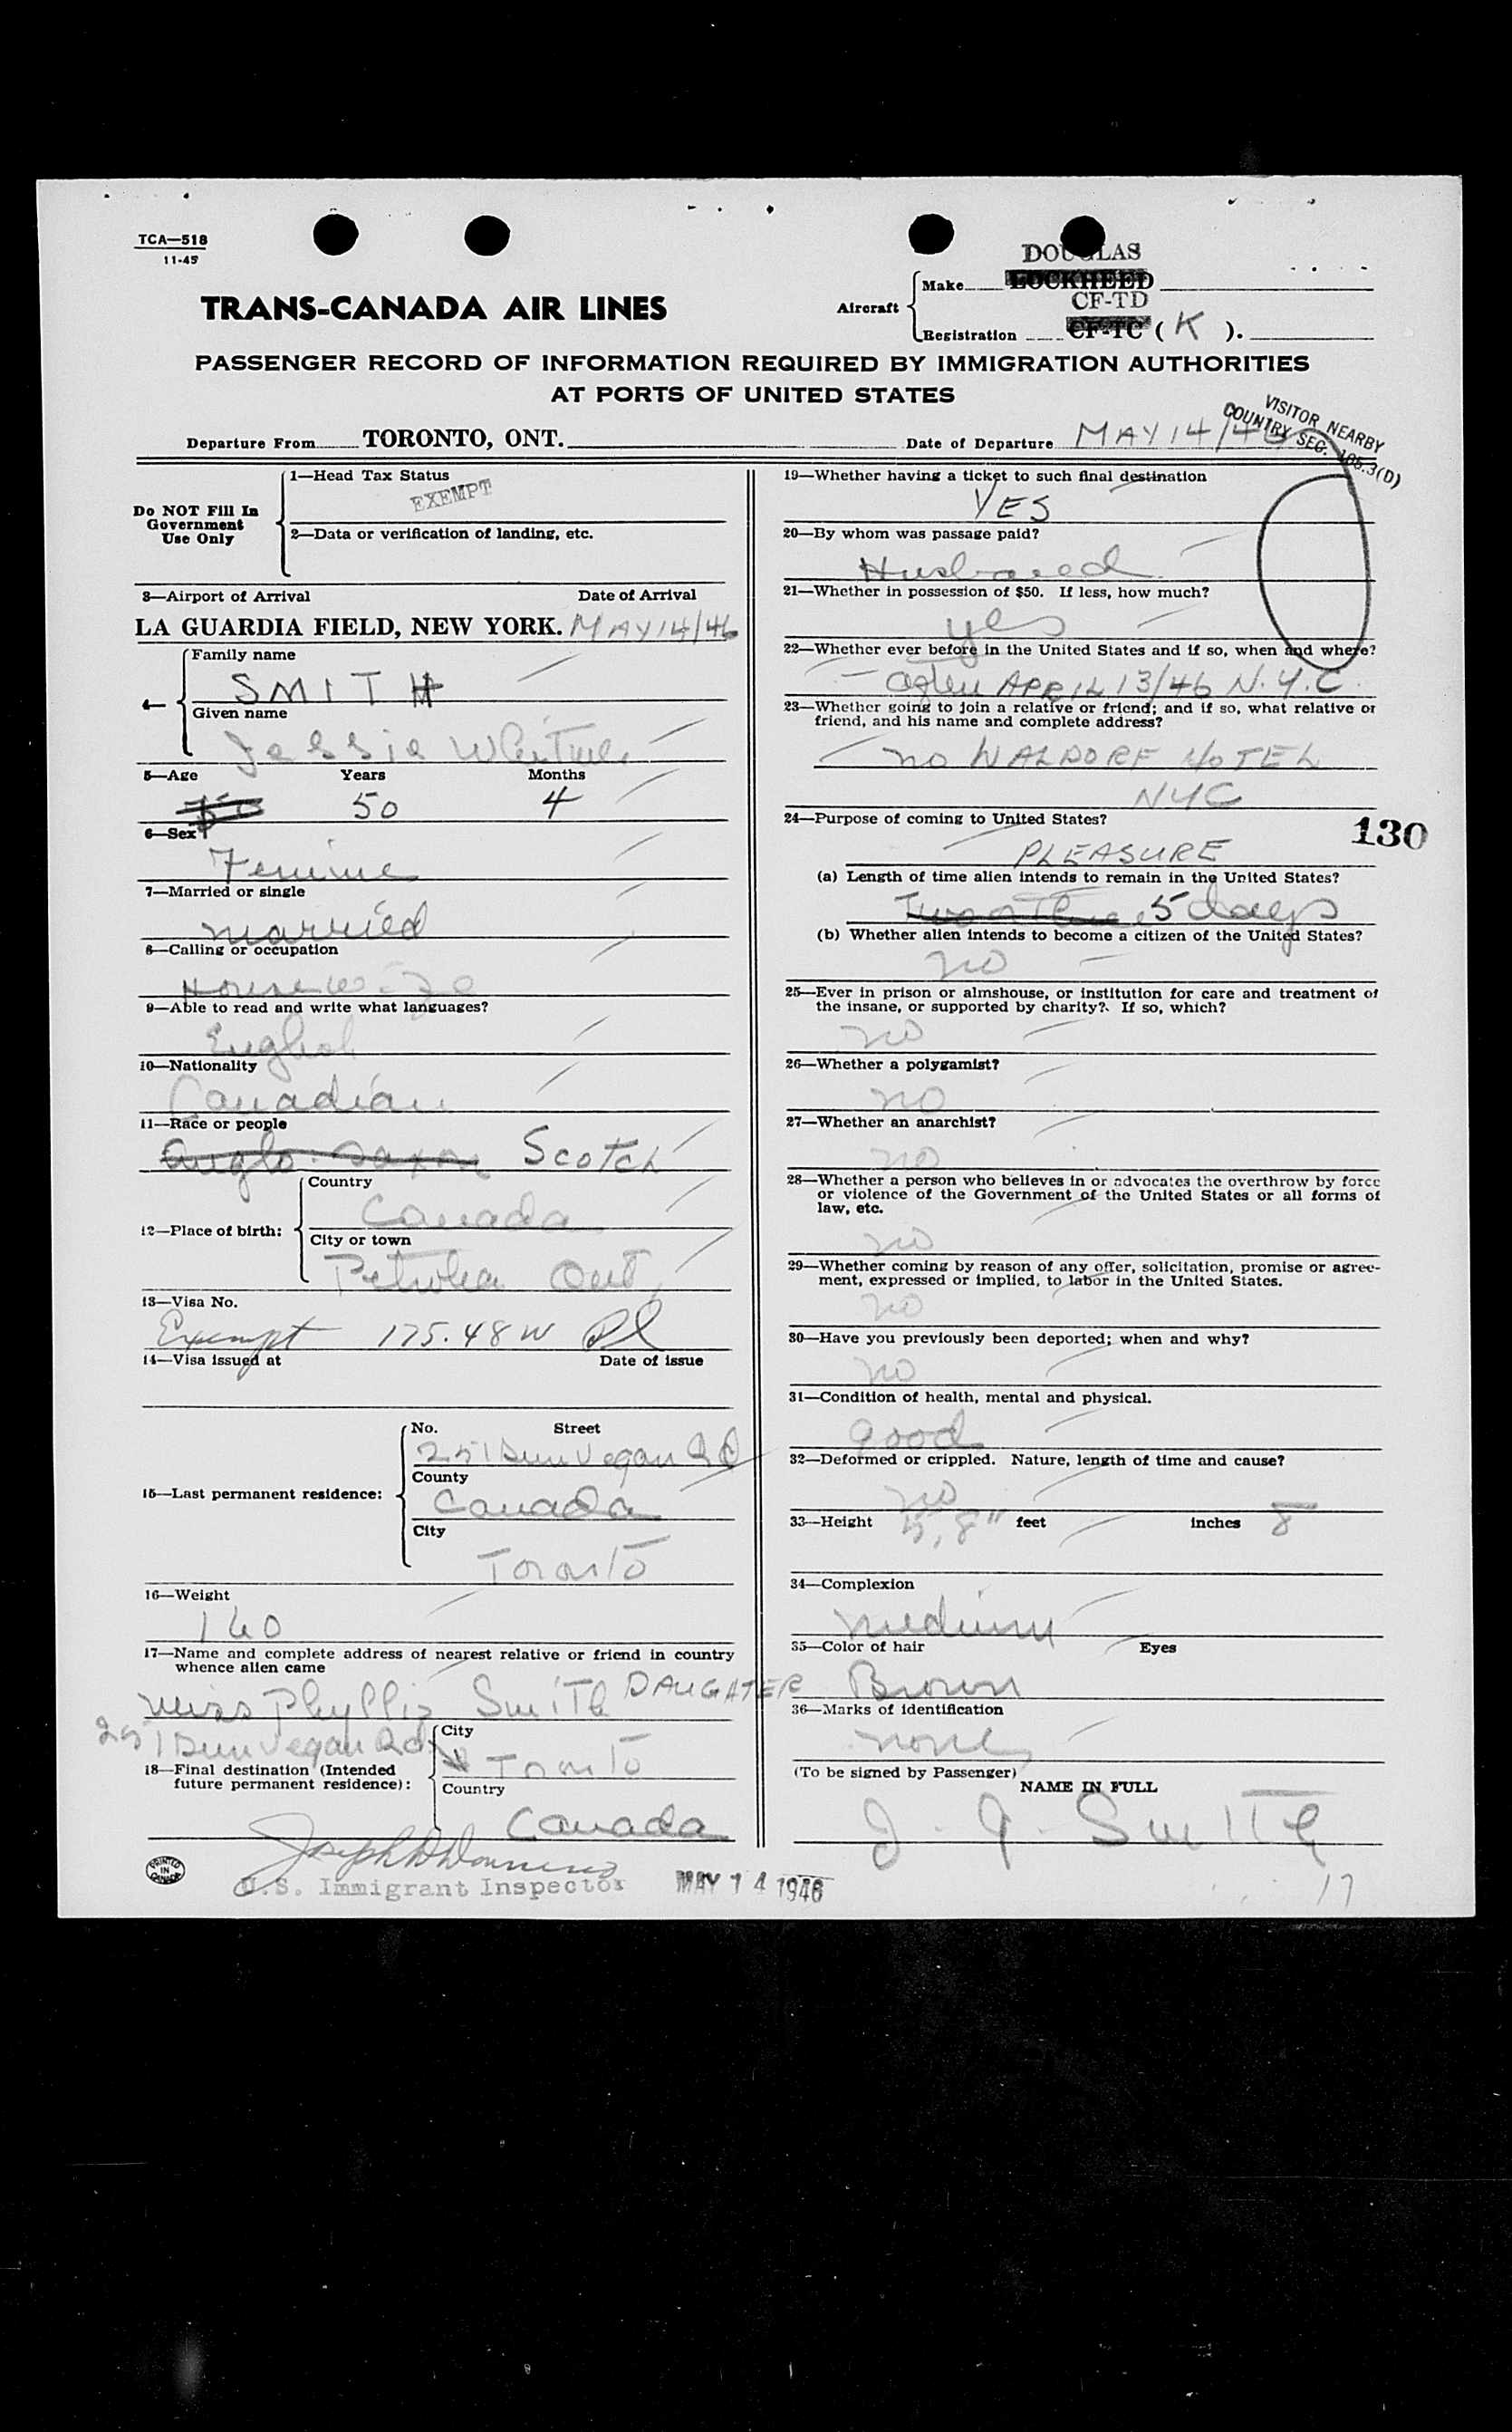 TCA—518
11-45
DOUGLAS
Aircraft
Make LOCKHEED
CF-TD
Registration CF-TC ( K ).
TRANS-CANADA AIR LINES
PASSENGER RECORD OF INFORMATION REQUIRED BY IMMIGRATION AUTHORITIES
AT PORTS OF UNITED STATES
VISITOR NEARBY
COUNTRY SEC. 165.3(D)
Departure From TORONTO, ONT. Date of Departure MAY 14/46
Do NOT Fill In
Government
Use Only
1—Head Tax Status
EXEMPT
2—Data or verification of landing, etc.
3—Airport of Arrival Date of Arrival
LA GUARDIA FIELD, NEW YORK. MAY 14/46
4— Family name
SMITH
Given name
Jessie
5—Age Years Months
50 4
6—Sex
Femine
7—Married or single
married
8—Calling or occupation
Housewife
9—Able to read and write what languages?
English
10—Nationality
Canadian
11—Race or people
Anglo-Saxon Scotch
12—Place of birth:
Country
Canada
City or town
Petrolia Ont,
13—Visa No.
Exempt 175.48 W
14—Visa issued at Date of issue
15—Last permanent residence:
No. Street
251 Dunvegan Rd
County
Canada
City
Toronto
16—Weight
160
17—Name and complete address of nearest relative or friend in country
whence alien came
Miss Phyllis Smith DAUGHTER
251 Dunvegan Rd
18—Final destination (Intended
future permanent residence):
City
Toronto
Country
Canada
PRINTED IN CANADA
U.S. Immigrant Inspector MAY 14 1946
19—Whether having a ticket to such final destination
YES
20—By whom was passage paid?
Husband
21—Whether in possession of $50. If less, how much?
yes
22—Whether ever before in the United States and if so, when and where?
often APRIL 13/46 N.Y.C.
23—Whether going to join a relative or friend; and if so, what relative or
friend, and his name and complete address?
no WALDORF HOTEL
NYC
24—Purpose of coming to United States?
130
PLEASURE
(a) Length of time alien intends to remain in the United States?
5 days
(b) Whether alien intends to become a citizen of the United States?
no
25—Ever in prison or almshouse, or institution for care and treatment of
the insane, or supported by charity? If so, which?
no
26—Whether a polygamist?
no
27—Whether an anarchist?
no
28—Whether a person who believes in or advocates the overthrow by force
or violence of the Government of the United States or all forms of
law, etc.
no
29—Whether coming by reason of any offer, solicitation, promise or agree-
ment, expressed or implied, to labor in the United States.
no
30—Have you previously been deported; when and why?
no
31—Condition of health, mental and physical.
good
32—Deformed or crippled. Nature, length of time and cause?
no
33—Height 5, 8" feet inches 8
34—Complexion
medium
35—Color of hair Eyes
Brown
36—Marks of identification
none
(To be signed by Passenger)
NAME IN FULL
J. Smith
17